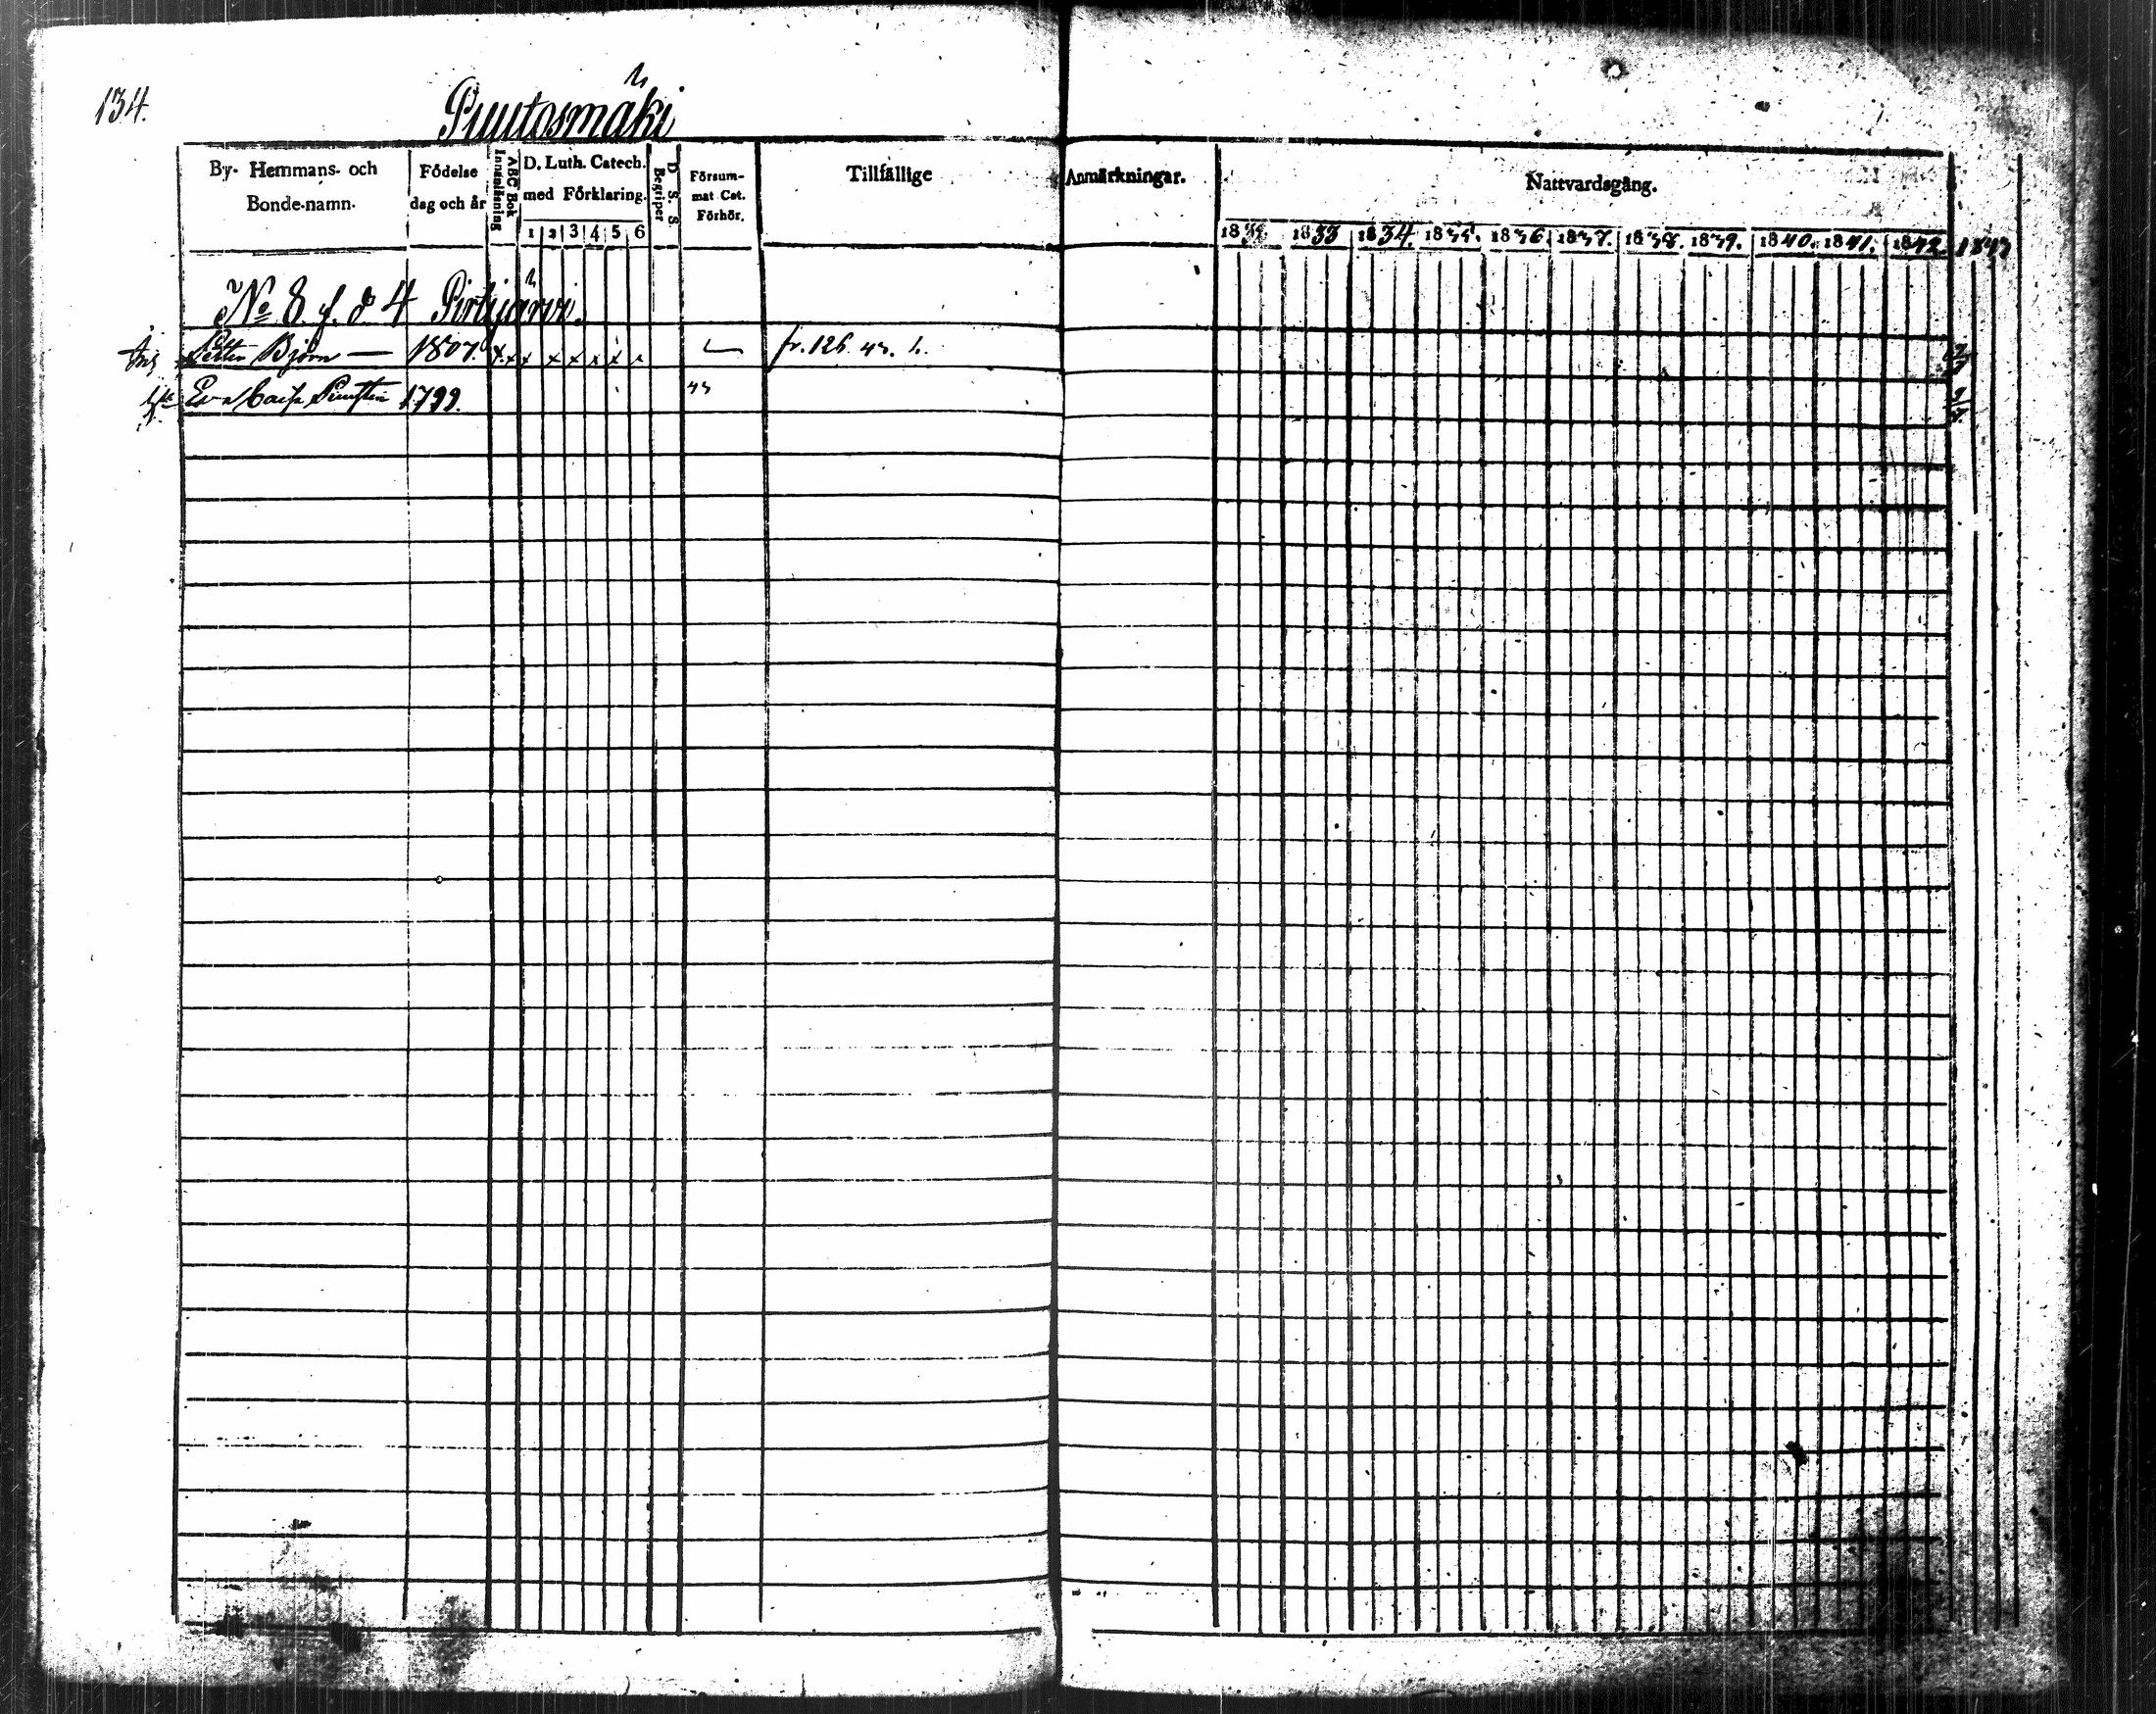 134.
Puutosmäki
By- Hemmans- och Bonde-namn.
Födelse dag och år
Innanläsning
ABC Bok
D. Luth. Catech. med Förklaring.
1 2 3 4 5 6
D. S. S Begriper
Försum- mat Cat. Förhör.
Tillfällige Anmärkningar.
Nattvardsgång.
1833 1834. 1835. 1836. 1837. 1838. 1839. 1840. 1841. 1842. 1843
No 8 f. d. 4 Pirttijärvi.
Petter Björn — 1807. x x x x x x x x fr. 126 43. h.
Eva Caisa 1799. 43